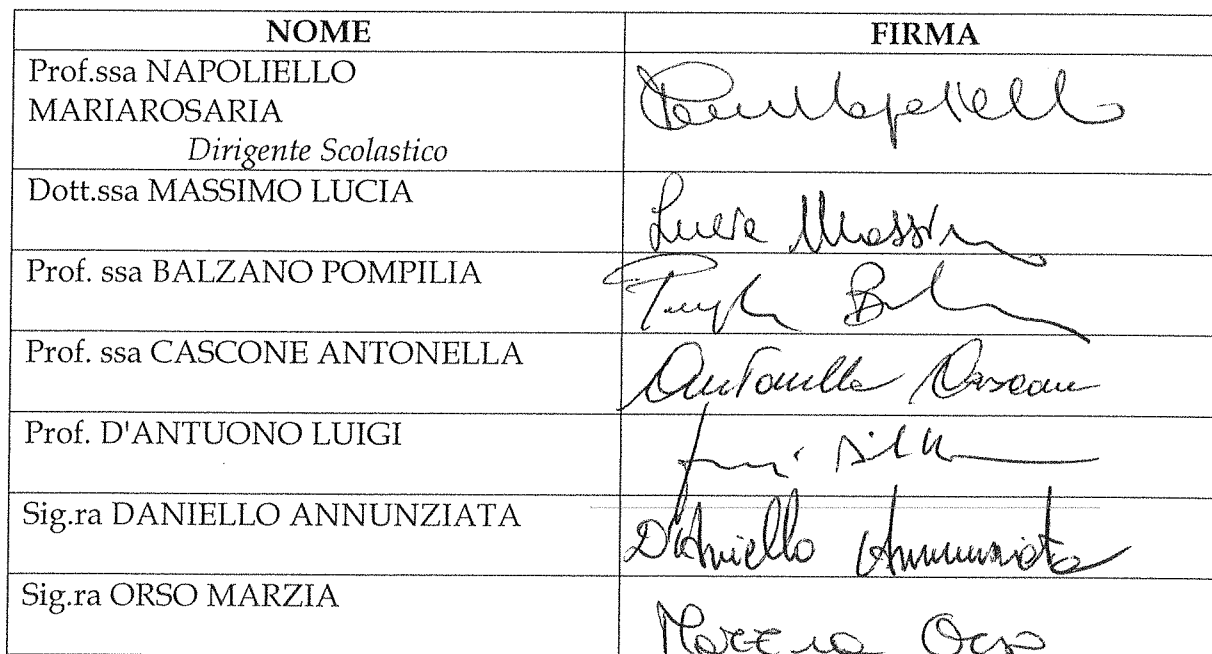 NOME FIRMA
Prof.ssa NAPOLIELLO
MARIAROSARIA
Dirigente Scolastico
Dott.ssa MASSIMO LUCIA
Lucia Massimo
Prof. ssa BALZANO POMPILIA
Prof. ssa CASCONE ANTONELLA
Antonella Cascone
Prof. D'ANTUONO LUIGI
Sig.ra DANIELLO ANNUNZIATA
D'Aniello Annunziata
Sig.ra ORSO MARZIA
Marzia Orso